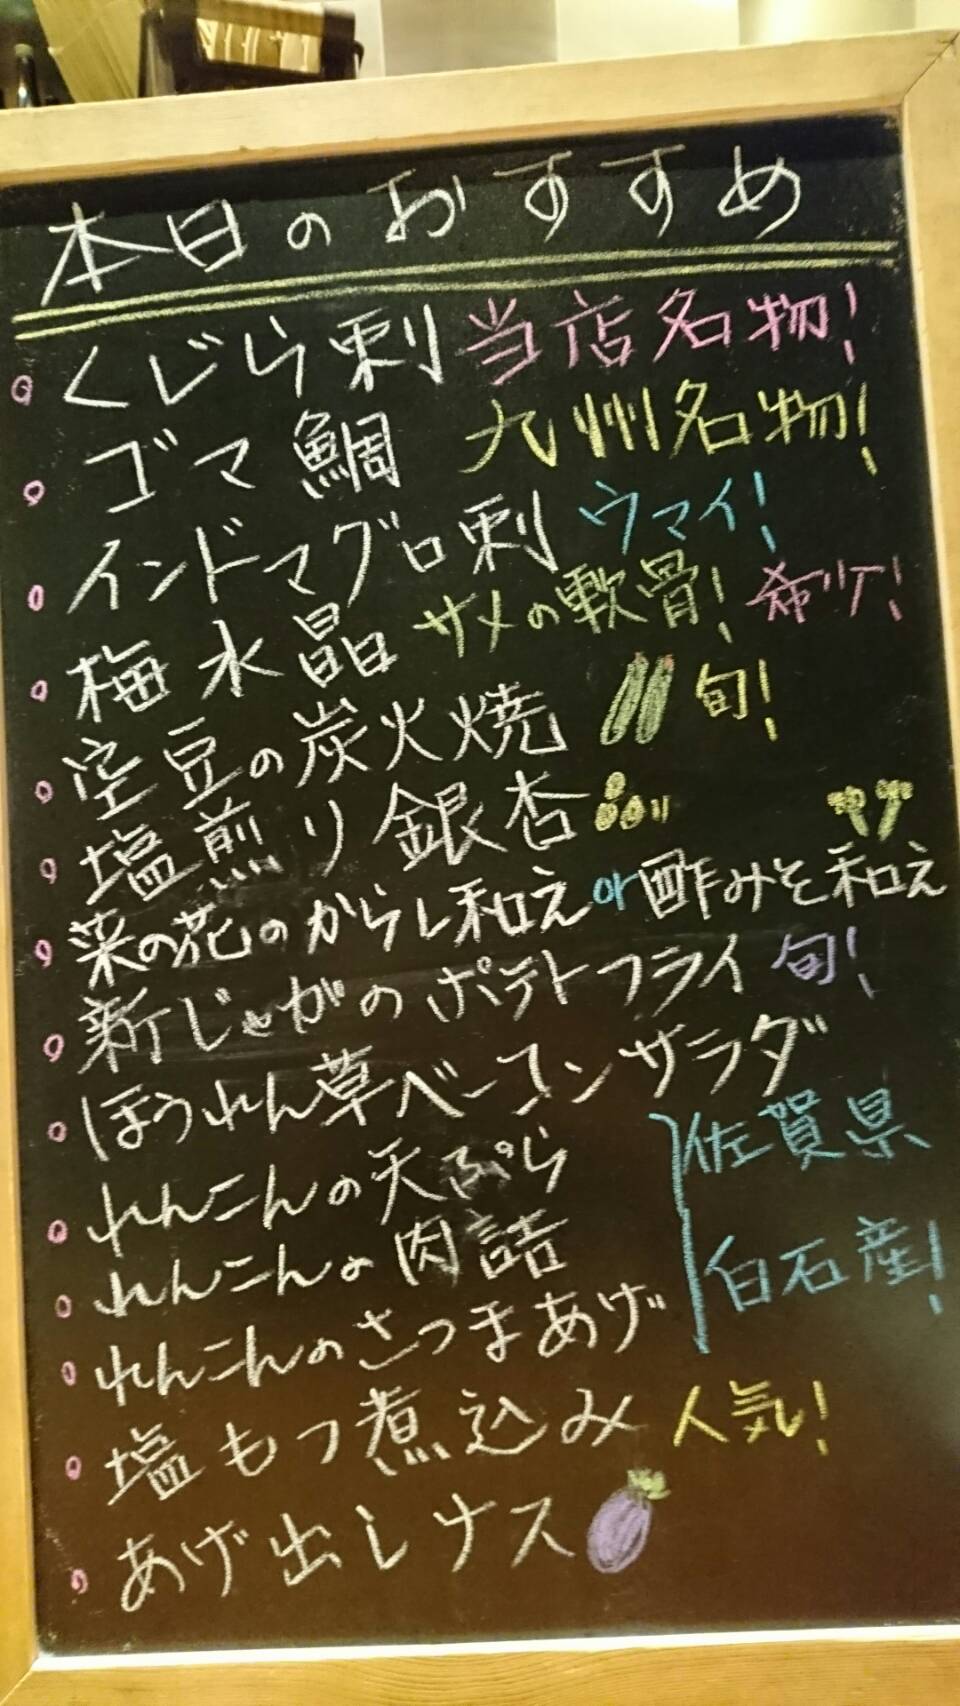 本日のおすすめ
くじら刺 当店名物!
ゴマ鯛 九州名物!
インドマグロ刺 ウマイ!
梅水晶 サメの軟骨! 希少!
空豆の炭火焼 旬!
塩煎り銀杏
菜の花のからし和え or 酢みそ和え
新じゃがのポテトフライ 旬!
ほうれん草ベーコンサラダ
れんこんの天ぷら 佐賀県
れんこんの肉詰 白石産!
れんこんのさつまあげ
塩もつ煮込み 人気!
あげ出しナス